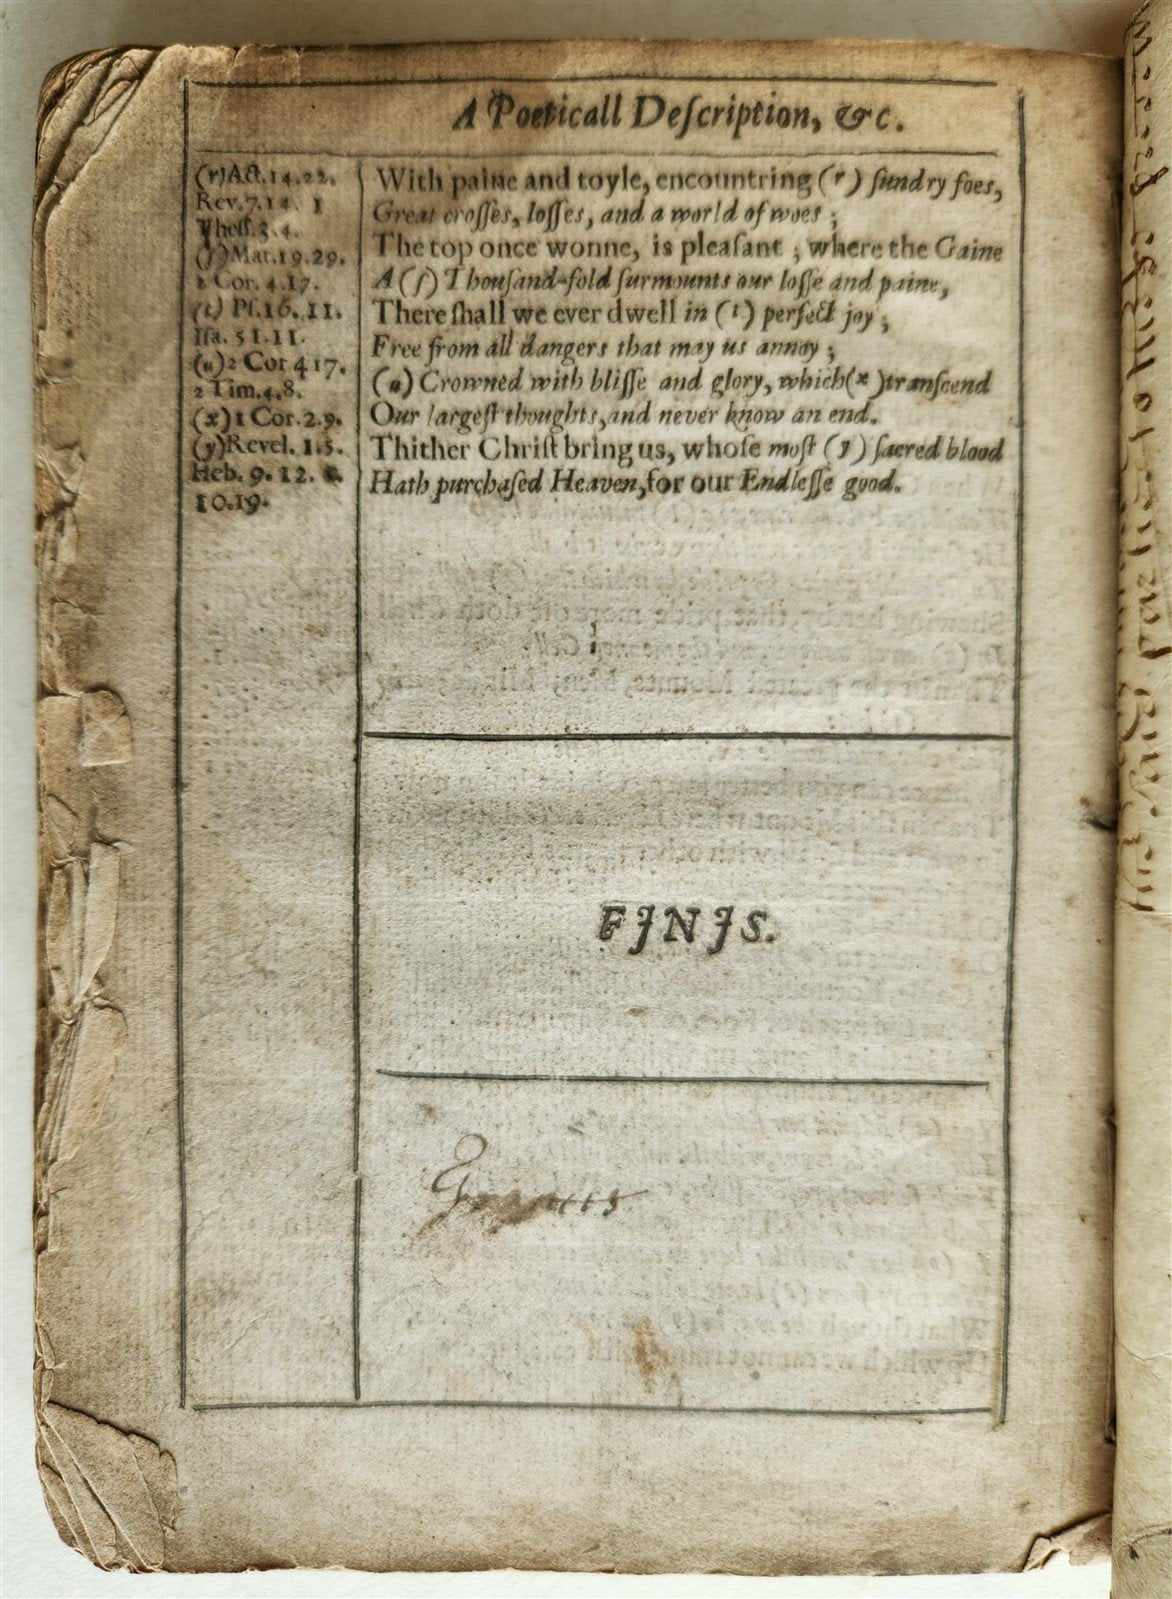 A Poeticall Deſcription, &c.
(r)Act.14.22.
Rev.7.14. 1
Theſſ.3.4.
(ſ)Mat.19.29.
2 Cor. 4.17.
(t) Pſ.16. 11.
Iſa. 51.11.
(u)2 Cor 4 17.
2 Tim.4.8.
(x)1 Cor.2.9.
(y)Revel. 1.5.
Heb. 9. 12. &
10.19.
With paine and toyle, encountring (r) ſundry foes,
Great croſſes, loſſes, and a world of woes;
The top once wonne, is pleaſant; where the Gaine
A (ſ) Thouſand-fold ſurmounts our loſſe and paine,
There ſhall we ever dwell in (t) perfect joy;
Free from all dangers that may us annoy;
(u) Crowned with bliſſe and glory, which(x)tranſcend
Our largeſt thoughts,and never know an end.
Thither Chriſt bring us, whoſe moſt (y) ſacred blood
Hath purchaſed Heaven,for our Endleſſe good.
FINIS.